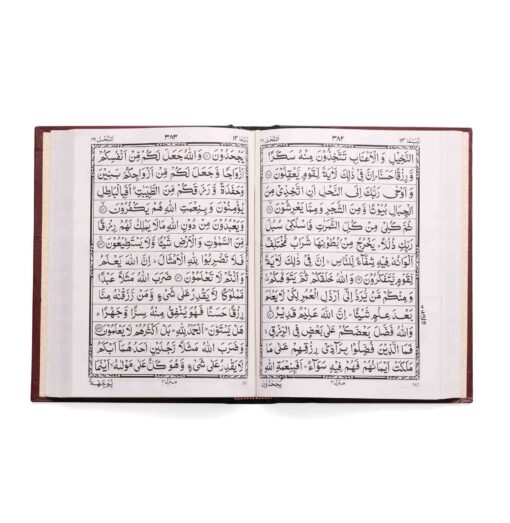 رُبَمَا ١٤ ٣٨٢ النَّحْل ١٦
النَّخِيْلِ وَ الْاَعْنَابِ تَتَّخِذُوْنَ مِنْهُ سَكَرًا
وَّ رِزْقًا حَسَنًا ؕ اِنَّ فِيْ ذٰلِكَ لَاٰيَةً لِّقَوْمٍ يَّعْقِلُوْنَ
وَ اَوْحٰى رَبُّكَ اِلَى النَّحْلِ اَنِ اتَّخِذِيْ مِنَ
الْجِبَالِ بُيُوْتًا وَّ مِنَ الشَّجَرِ وَ مِمَّا يَعْرِشُوْنَ
ثُمَّ كُلِيْ مِنْ كُلِّ الثَّمَرٰتِ فَاسْلُكِيْ سُبُلَ
رَبِّكِ ذُلُلًا ؕ يَخْرُجُ مِنْۢ بُطُوْنِهَا شَرَابٌ مُّخْتَلِفٌ
اَلْوَانُهٗ فِيْهِ شِفَآءٌ لِّلنَّاسِ ؕ اِنَّ فِيْ ذٰلِكَ لَاٰيَةً
لِّقَوْمٍ يَّتَفَكَّرُوْنَ وَ اللّٰهُ خَلَقَكُمْ ثُمَّ يَتَوَفّٰىكُمْ
وَ مِنْكُمْ مَّنْ يُّرَدُّ اِلٰۤى اَرْذَلِ الْعُمُرِ لِكَيْ لَا يَعْلَمَ
بَعْدَ عِلْمٍ شَيْـًٔا ؕ اِنَّ اللّٰهَ عَلِيْمٌ قَدِيْرٌ
وَ اللّٰهُ فَضَّلَ بَعْضَكُمْ عَلٰى بَعْضٍ فِي الرِّزْقِ ۚ
فَمَا الَّذِيْنَ فُضِّلُوْا بِرَآدِّيْ رِزْقِهِمْ عَلٰى مَا
مَلَكَتْ اَيْمَانُهُمْ فَهُمْ فِيْهِ سَوَآءٌ ؕ اَفَبِنِعْمَةِ اللّٰهِ
يَجْحَدُوْنَ
رُبَمَا ١٤ ٣٨٣ النَّحْل ١٦
يَجْحَدُوْنَ وَ اللّٰهُ جَعَلَ لَكُمْ مِّنْ اَنْفُسِكُمْ
اَزْوَاجًا وَّ جَعَلَ لَكُمْ مِّنْ اَزْوَاجِكُمْ بَنِيْنَ
وَ حَفَدَةً وَّ رَزَقَكُمْ مِّنَ الطَّيِّبٰتِ ؕ اَفَبِالْبَاطِلِ
يُؤْمِنُوْنَ وَ بِنِعْمَتِ اللّٰهِ هُمْ يَكْفُرُوْنَ
وَ يَعْبُدُوْنَ مِنْ دُوْنِ اللّٰهِ مَا لَا يَمْلِكُ لَهُمْ رِزْقًا
مِّنَ السَّمٰوٰتِ وَ الْاَرْضِ شَيْـًٔا وَّ لَا يَسْتَطِيْعُوْنَ
فَلَا تَضْرِبُوْا لِلّٰهِ الْاَمْثَالَ ؕ اِنَّ اللّٰهَ يَعْلَمُ
وَ اَنْتُمْ لَا تَعْلَمُوْنَ ضَرَبَ اللّٰهُ مَثَلًا عَبْدًا
مَّمْلُوْكًا لَّا يَقْدِرُ عَلٰى شَيْءٍ وَّ مَنْ رَّزَقْنٰهُ مِنَّا
رِزْقًا حَسَنًا فَهُوَ يُنْفِقُ مِنْهُ سِرًّا وَّ جَهْرًا ؕ
هَلْ يَسْتَوٗنَ ؕ اَلْحَمْدُ لِلّٰهِ ؕ بَلْ اَكْثَرُهُمْ لَا يَعْلَمُوْنَ
وَ ضَرَبَ اللّٰهُ مَثَلًا رَّجُلَيْنِ اَحَدُهُمَاۤ اَبْكَمُ
لَا يَقْدِرُ عَلٰى شَيْءٍ وَّ هُوَ كَلٌّ عَلٰى مَوْلٰىهُ ۙ اَيْنَمَا
يُوَجِّهْهُّ